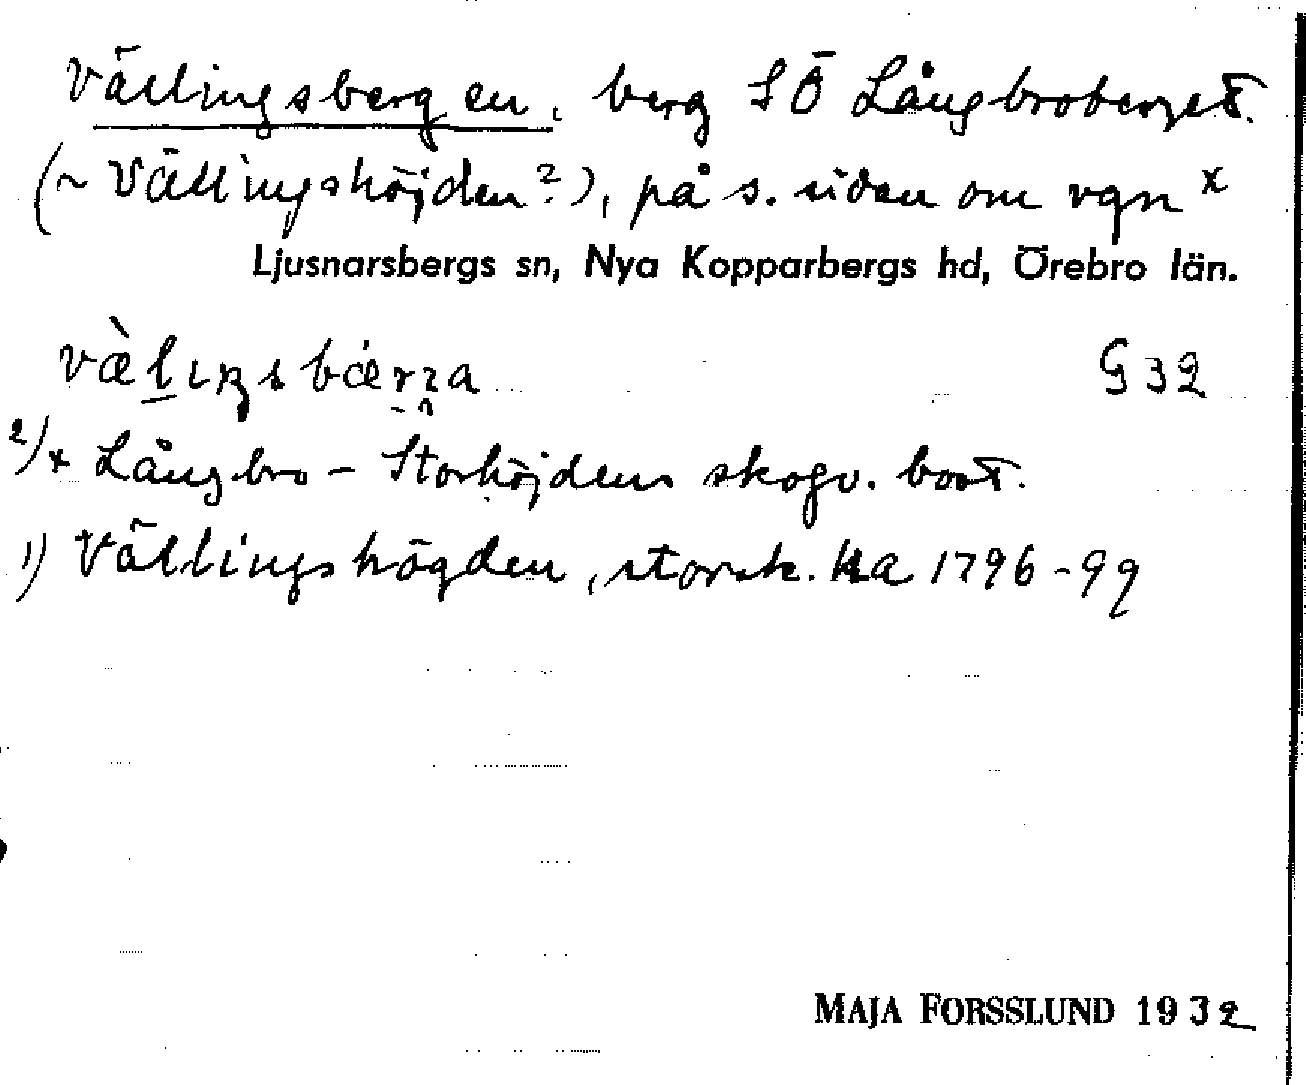 Vällingsbergen, berg SÖ Långbroberget.
(~ Vällingshöjden?), på s. sidan om vgn x
Ljusnarsbergs sn, Nya Kopparbergs hd, Örebro län.
G 32
2) x Långbro - Storhöjdens skogv. bost.
1) Vällingshögden, storsk. ka 1796-99
MAJA FORSSLUND 1932